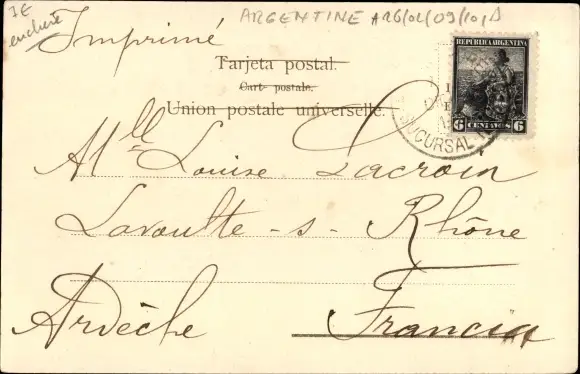 1E
enchère
ARGENTINE ARG/02/09/10/A
Imprimé
Tarjeta postal.
Carte postale.
Union postale universelle.
REPUBLICA ARGENTINA
6 CENTAVOS 6
SUCURSAL
Mlle Louise Lacroix
Lavoulte-s-Rhône
Ardèche Francia